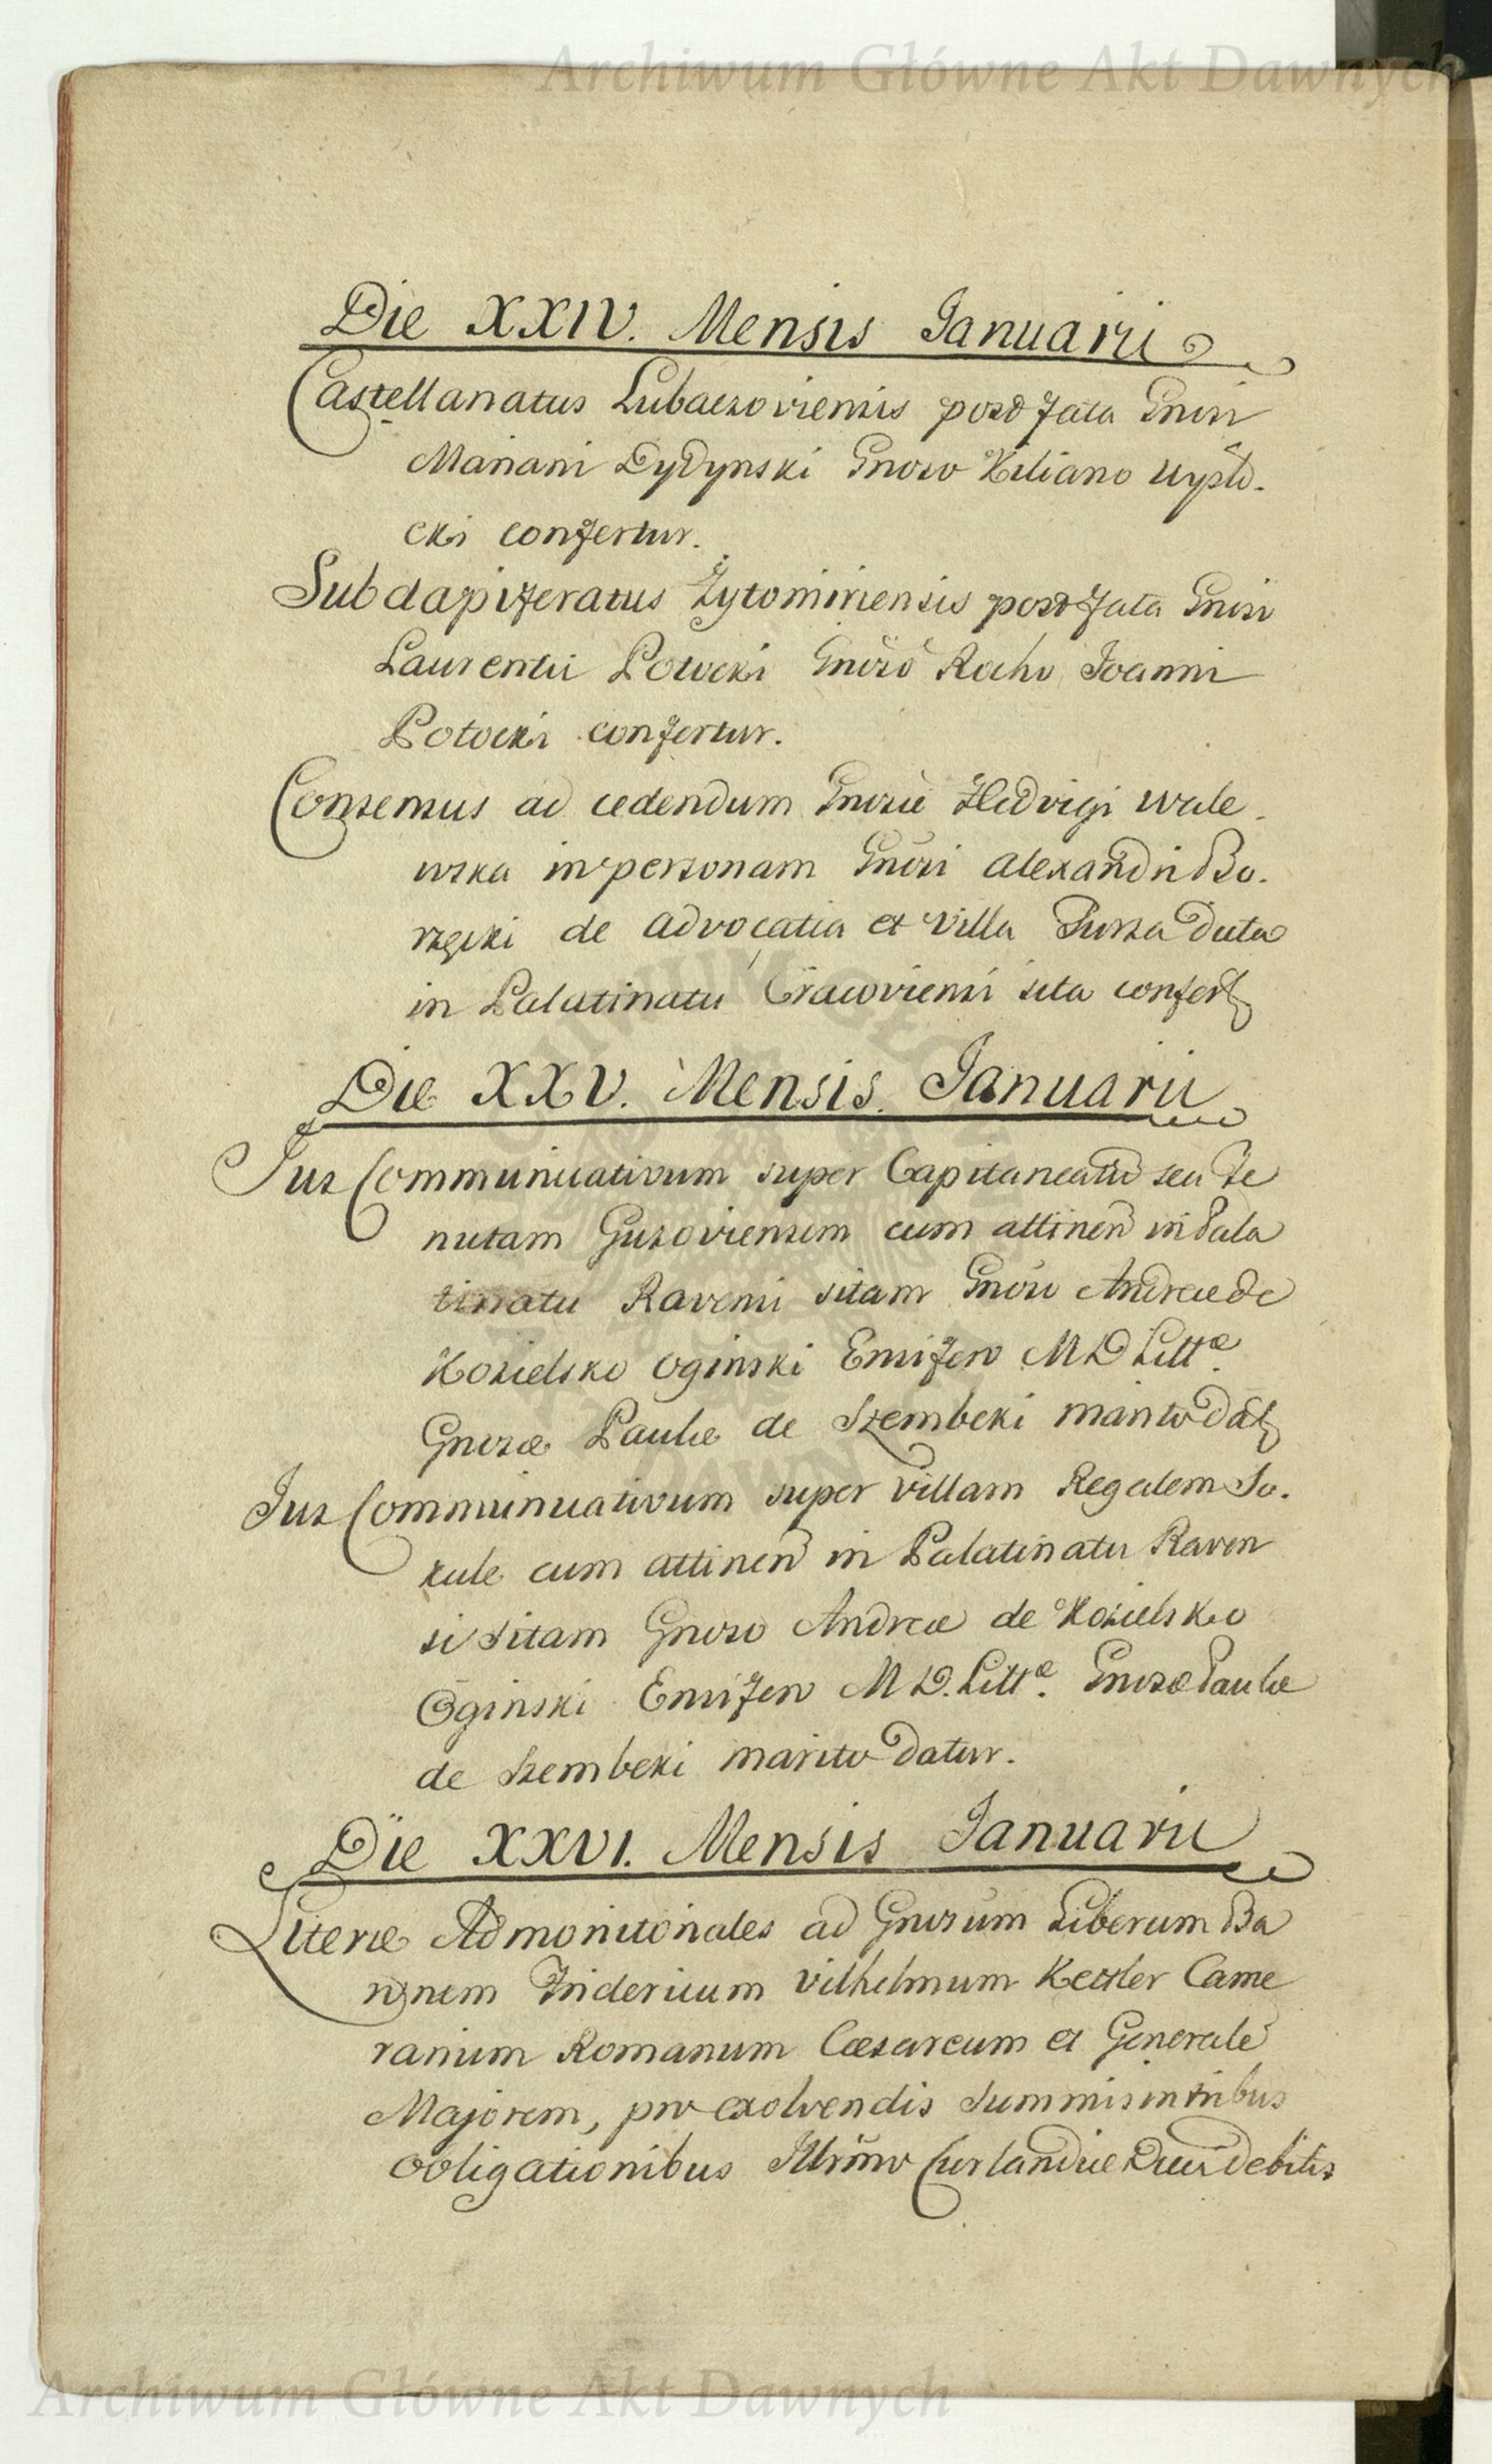 Archiwum Główne Akt Dawnych
Die XXIV. Mensis Januarii
Castellanatus Lubaczoviensis post fata Gnisi
Mariani Dydynski Gnoso Kiliano
cki confertur.
Subdapiferatus Żytomiriensis post fata Gnisi
Laurentii Potocki Gnoso Rocho Joanni
Potocki confertur.
Consensus ad cedendum Gnosæ Hedvigi Wale
wska in personam Gnosi Alexandri Bo.
rzęcki de advocatia et villa dicta
in Palatinatu Cracoviensi sita confert
Die XXV. Mensis Januarii
Jus Communicativum super Capitaneatu seu Te
nutam Guzoviensem cum attinen in Pala
tinatu Ravensi sitam Gnoso Andreæ de
Kozielsko Oginski Ensifero M D Littæ.
Gnosæ Paulæ de Szembeki marito dat
Jus Communicativum super villam Regalem So.
kule cum attinen in Palatinatu Raven
si sitam Gnoso Andreæ de Kozielsko
Oginski Ensifero M D. Littæ. Gnosæ Paulæ
de Szembeki marito datur.
Die XXVI. Mensis Januarii
Literæ Admonitoriales ad Gnosum Liberum Ba
ronem Fridericum Vilhelmum Kettler Came
rarium Romanum Cæsareum et Generale
Majorem, pro exolvendis summis in tribus
obligationibus Illrimo Curlandiæ Duci debitis
Archiwum Główne Akt Dawnych